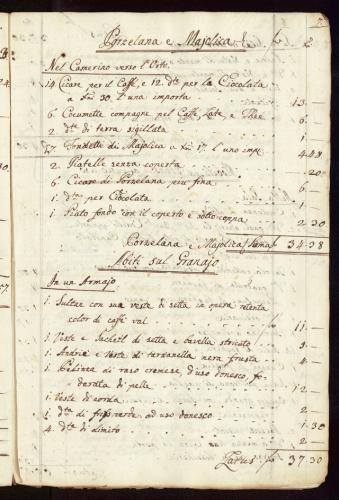 Porzelana e Majolica
Nel Camerino verso l'Orto.
14 Cicare per il Caffé, e 12. dte per la Ciocolata
a Xni 30 l'una importa 13 –
6. Cocumette compagne pel Caffe, Late, e Thee 6 –
2 dte di terra sigillata 1 –
17 Tondette di Majolica a Xni 17. l'uno impe 4.48
2. Piatelle senza coperta – 20
6. Cicare di Porzelana piu fina 6 –
1. dta per Ciocolata 1 –
1 Piato fondo con il coperto e sottocoppa 2 30
Porzelana e Majolica Suma 34.38
Abiti sul Granajo
In un Armajo
1. con sua veste di setta in opera
color di caffé 11 –
1. Veste e di setta e bavella
1 Andriè e Veste di terzanella nera frusta 4 –
1 di raso cremese d'uso donesco, fo-
derata di pelle 12 –
1 Veste di 2 –
1. dta di verde ad uso donesco 1 30
4. dte di dimito 2 –
Latus 37 30